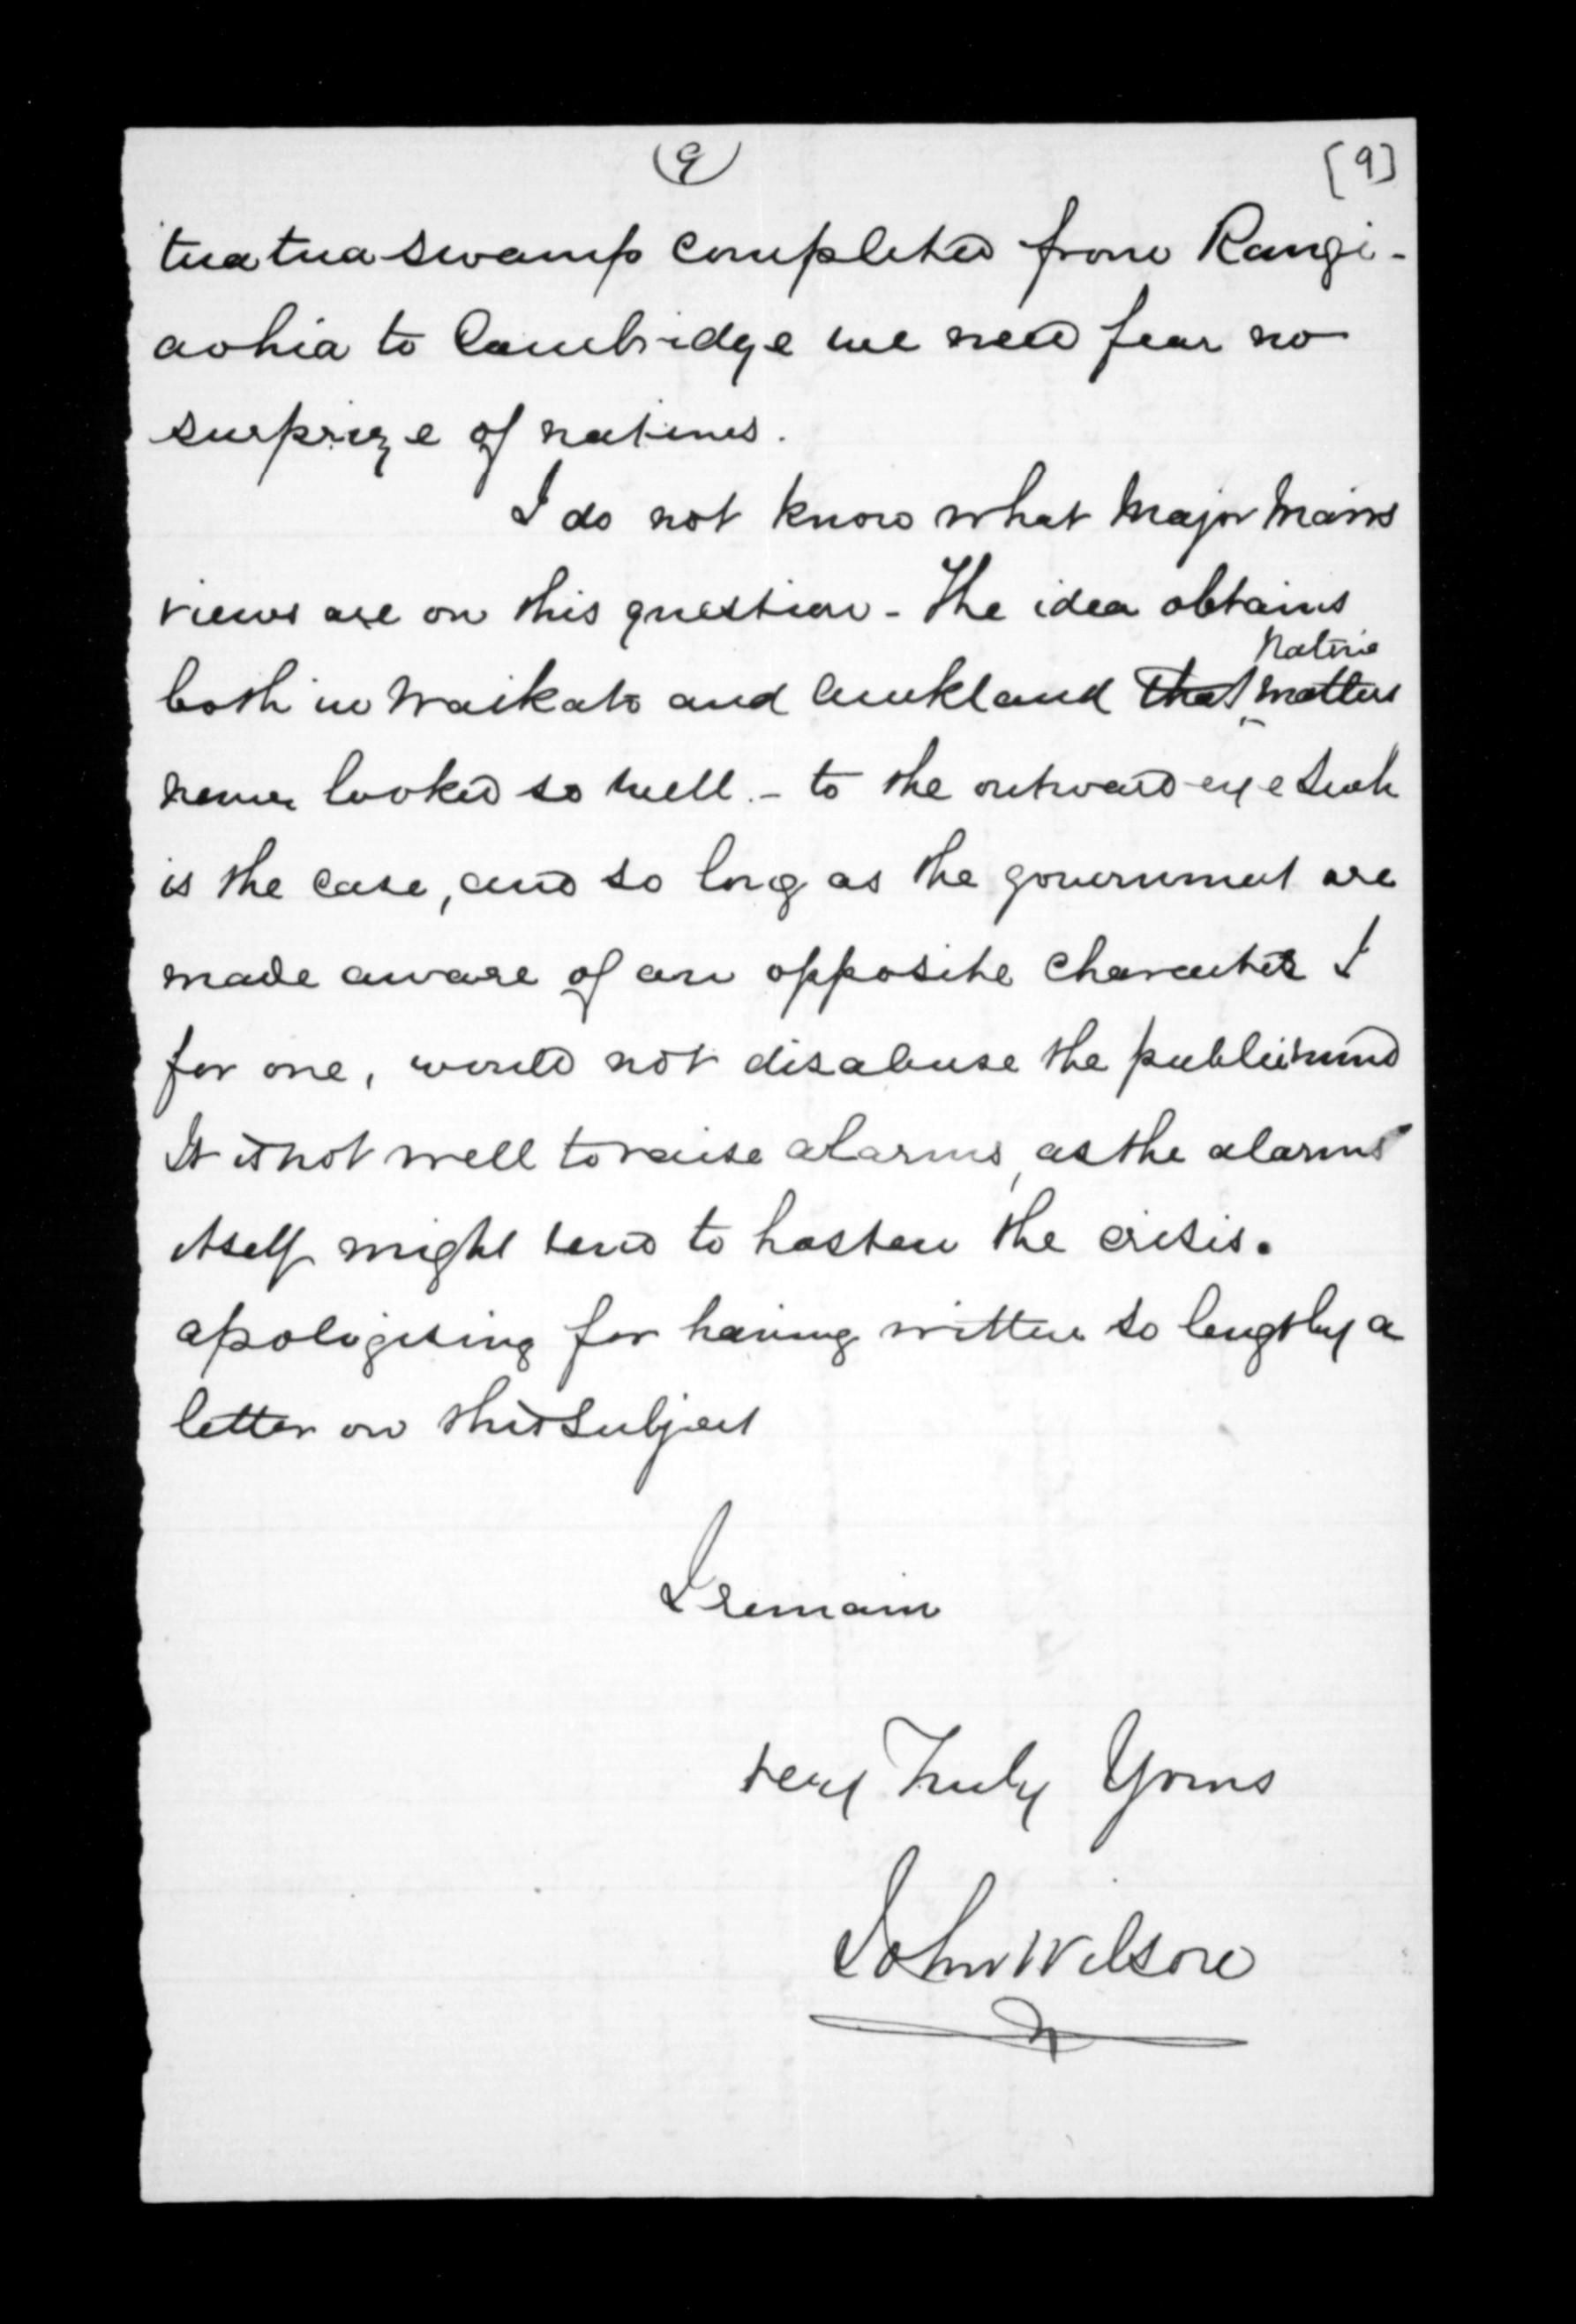 (9) [9]
tuatua swamp completed from Rangi-
aohia to Cambridge we need fear no
surprize of natives.
I do not know what Major Mairs
views are on this question - The idea obtains
Native
both in Waikato and Auckland that matters
never looked so well. - to the outward eye such
is the case, and so long as the government are
made aware of an opposite character I
for one, would not disabuse the public mind
It is not well to raise alarms, as the alarms
itself might tend to hasten the crisis.
apologising for having written so lengthy a
letter on this subject
I remain
Very Truly Yours
John Wilson